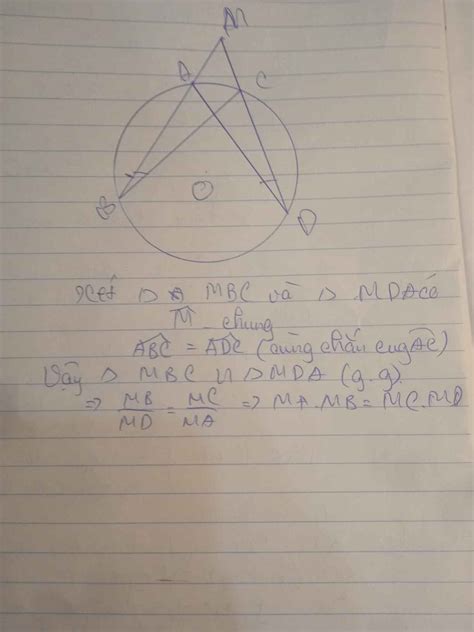 M
A
C
B
O
D
Xét △ MBC và △ MDA có
M̂ chung
ABC = ADC (cùng chắn cung AC)
Vậy △ MBC ∽ △ MDA (g.g)
=> MB/MD = MC/MA => MA.MB = MC.MD